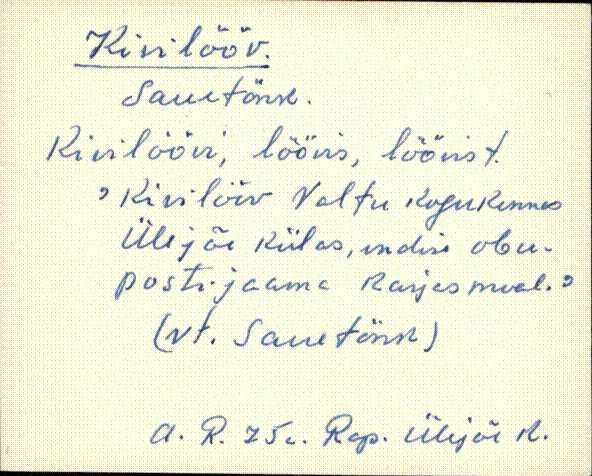 Kivilööv.
Sauetönsk.
Kivilöövi, löövis, löövist.
"Kivilööv Valtu kogukennas
Ülejõe külas, endise obu-
posti-jaama karjasmaal."
(vt. Sauetönsk)
A. R. 75a. Rap. Ülejõe k.